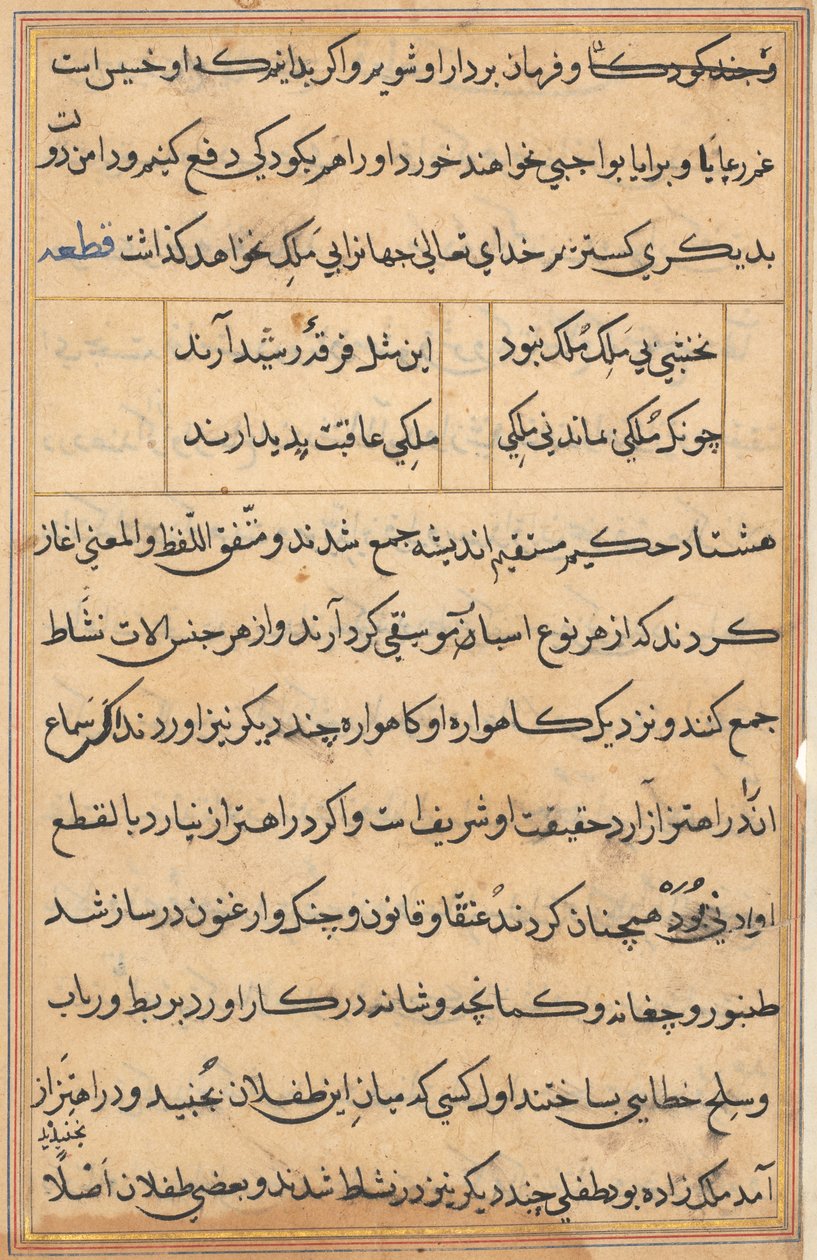 و چند کودک و فرمان بردار او شویم و اکر بدانیم که او خسیس است
غم رعایا و برایا بواجبی نخواهند خورد او را هم بکودکی دفع کنیم و دامن دولت
بدیکری کسترم خدای تعالی جهانرا بی مَلِک نخواهد کذاشت قطعه
نخشبی بی مَلِک مُلک نبود این مثل فرقهٔ رشید آرند
چونک مُلکی نماند بی مِلِکی ملِکی عاقبت پدید ارند
هشتاد حکیم مستقیم اندیشه جمع شدند و متّفق اللّفظ والمعنی اغاز
کردند که از هر نوع اسباب موسیقی کرد آرند و از هر جنس الات نشاط
جمع کنند و نزدیک کاهواره او کاهواره چند دیکر نیز اوردند اکر سماع
انرا در اهتزاز آرد حقیقت او شریف است و اکر در اهتزاز نیارد بالقطع
او ادنی بُوَد همچنان کردند عنقا و قانون و چنک و ارغنون در ساز شد
طنبور و چغانه و کمانچه و شانه در کار اورد بربط و رباب
و سلح خطایی بساختند اول کسی که میانِ این طفلان بجُنبید و در اهتِزاز
آمد ملک زاده بود طفلی چند دیکر نیز در نشاط شدند و بعضی طفلان اَصْلًا نجنبیدند